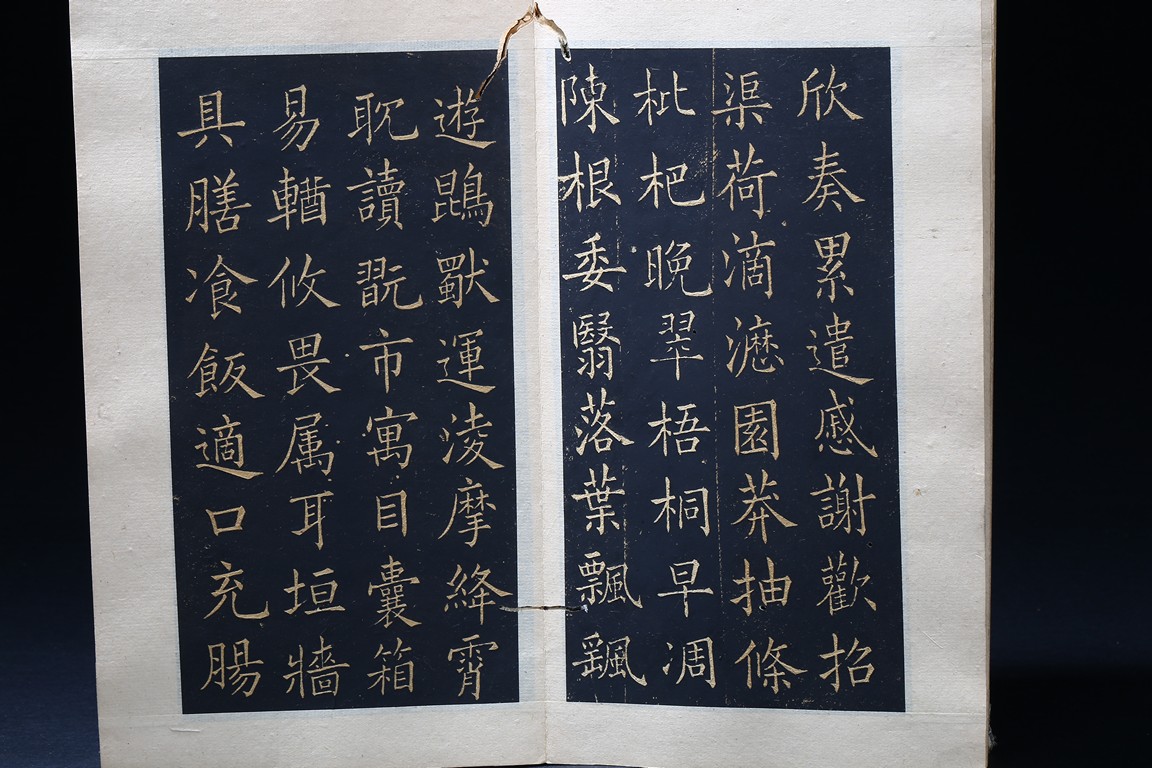 欣奏累遣慼謝歡招
渠荷滴瀝園莽抽條
枇杷晚翠梧桐早凋
陳根委翳落葉飄颻
遊鵾獸運淩摩絳霄
耽讀翫市寓目囊箱
易輶攸畏属耳垣牆
具膳飡飯適口充腸